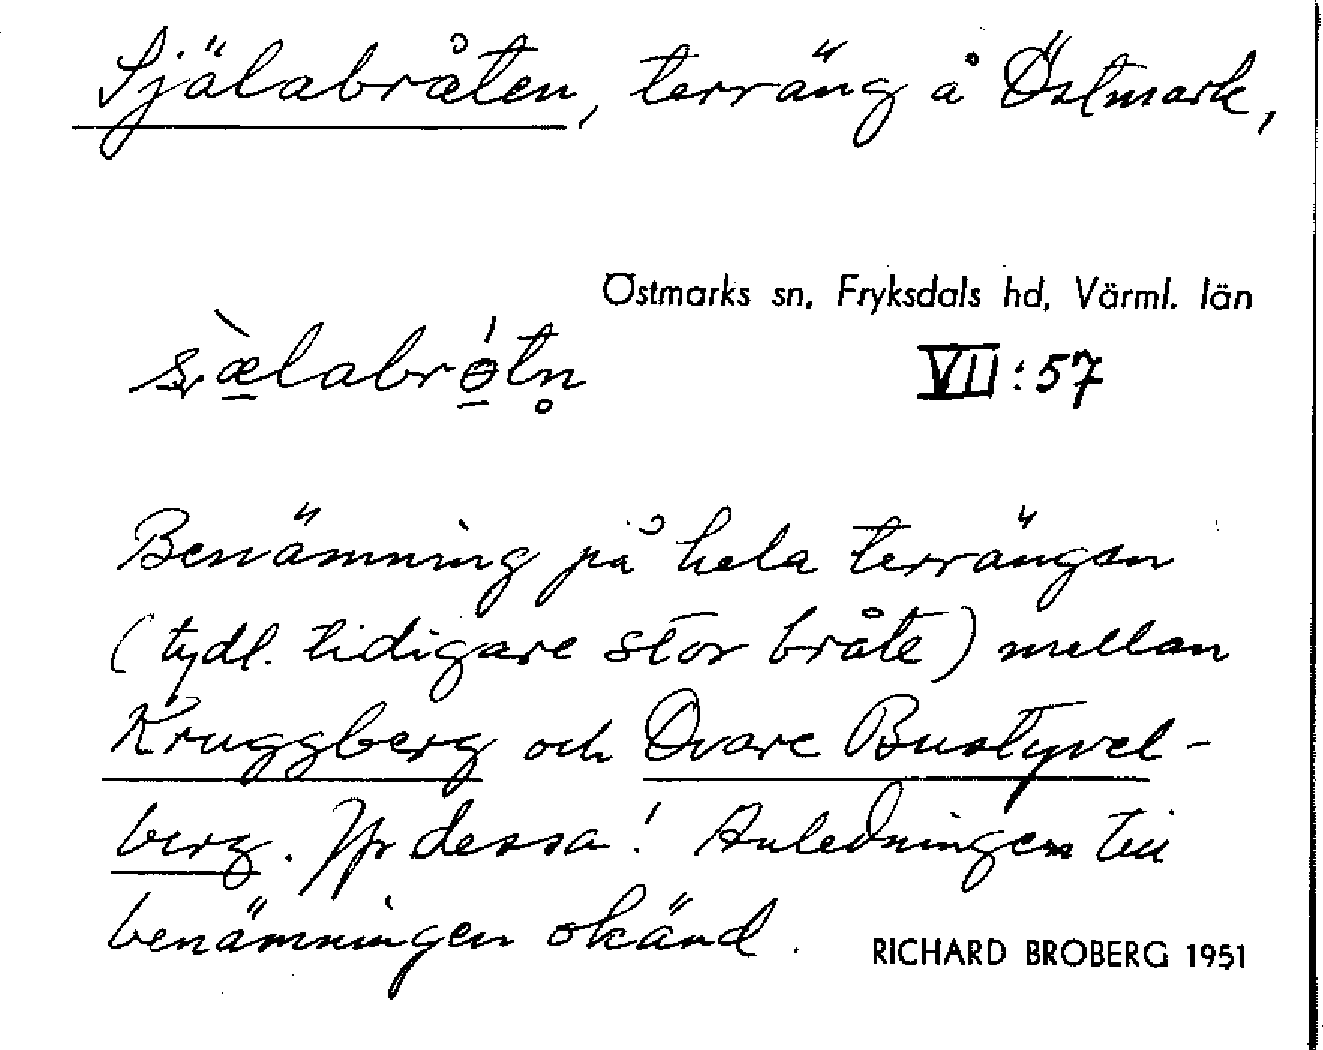 Själabråten, terräng å Östmark,
Östmarks sn, Fryksdals hd, Värml. län
VII:57
Benämning på hela terrängen
(tydl. tidigare stor bråte) mellan
Kruggberg och Övare Bustyvel-
berg. Jfr dessa! Anledningen till
benämningen okänd.
RICHARD BROBERG 1951